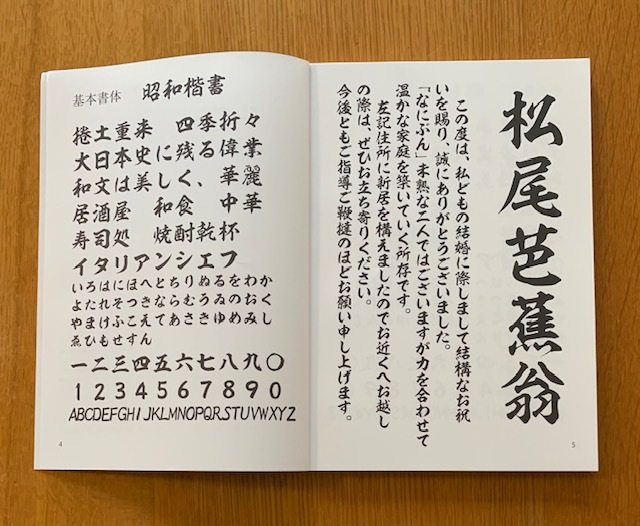 基本書体　昭和楷書
捲土重来　四季折々
大日本史に残る偉業
和文は美しく、華麗
居酒屋　和食　中華
寿司処　焼酎乾杯
イタリアンシェフ
いろはにほへとちりぬるをわか
よたれそつきならむうゐのおく
やまけふこえてあさきゆめみし
ゑひもせすん
一二三四五六七八九〇
1234567890
ABCDEFGHIJKLMNOPQRSTUVWXYZ
4
松尾芭蕉翁
この度は、私どもの結婚に際しまして結構なお祝
いを賜り、誠にありがとうございました。
「なにぶん」未熟な二人ではございますが力を合わせて
温かな家庭を築いていく所存です。
左記住所に新居を構えましたのでお近くへお越し
の際は、ぜひお立ち寄りください。
今後ともご指導ご鞭撻のほどお願い申し上げます。
5